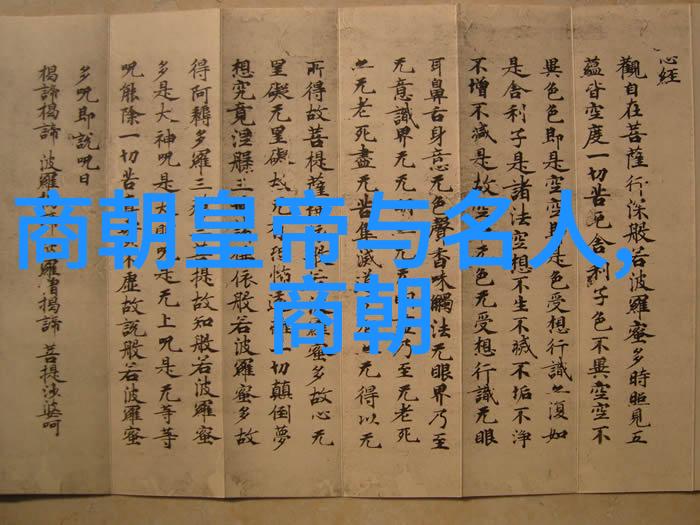 商朝皇帝与名人,
商朝
心经
觀自在菩薩行深般若波羅蜜多時照見五
蘊皆空度一切苦厄舍利子色不異空空不
異色色即是空空即是色受想行識亦復如
是舍利子是諸法空想不生不滅不垢不淨
不增不減是故空无色无受想行識无眼
耳鼻舌身意无色聲香味觸法无眼界乃至
无意識界无无明乃至无老死
亦无老死盡无苦集滅道无得以无
所得故菩提薩波羅蜜多故心无
罣礙无罣礙故无恐怖一切顛倒夢
想究竟涅槃三依般若波羅蜜多故
得阿耨多羅三菩提故知般若波羅蜜
多是大神咒是大明咒是无上咒是无等等
咒能除一切苦不虛故說般若波羅蜜
多咒即說咒曰
揭諦揭諦 波羅 波羅僧揭諦 菩提沙婆呵